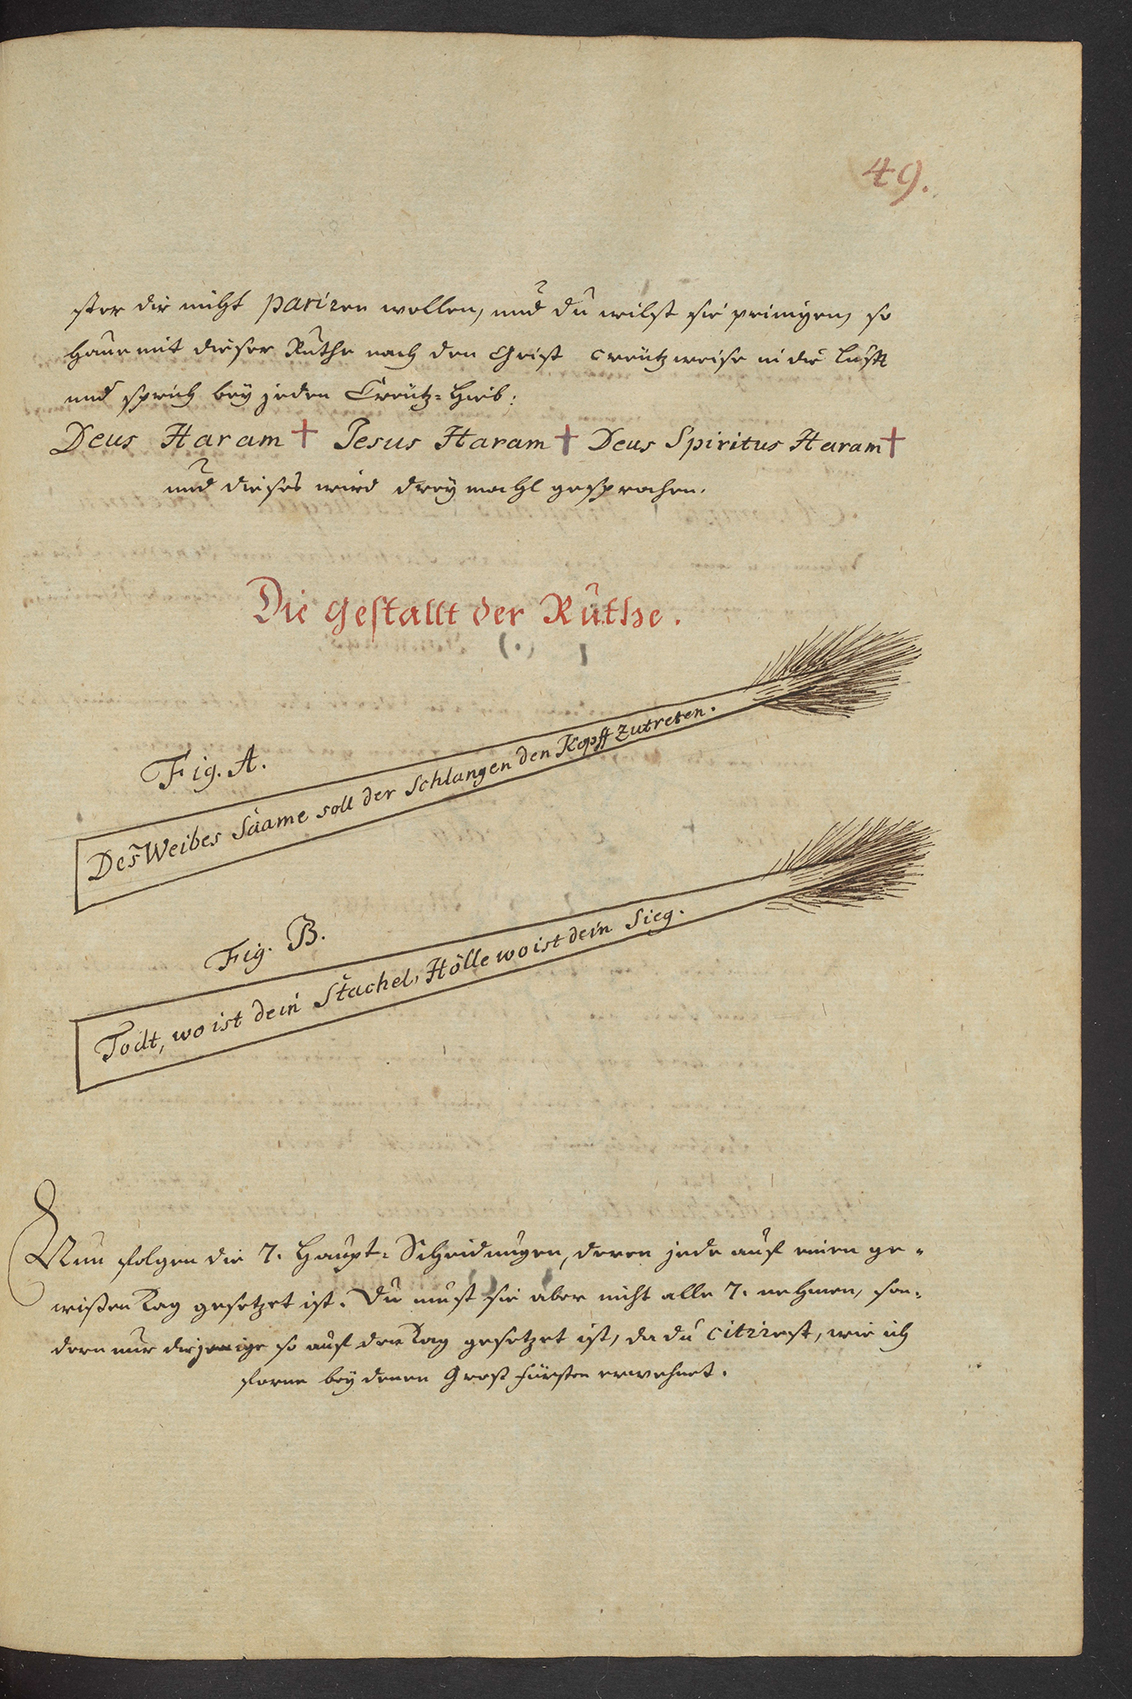 49.
ster dir nicht pariren wollen, und du wilst sie peinigen, so
haue mit dieser Ruthe nach den Geist creützweise in die Lufft
und sprich beÿ jeden Creütz-Hieb:
Deus Haram † Jesus Haram † Deus Spiritus Haram †
und dieses wird dreÿ mahl gesprochen.
Die Gestallt der Ruthe.
Fig. A.
Des Weibes Saame soll der Schlangen den Kopff zutreten.
Fig. B.
Todt, wo ist dein Stachel, Hölle wo ist dein Sieg.
Nun folgen die 7. Haupt-Scheidungen, deren jede auf einen ge-
wißen Tag gesetzet ist. Du must sie aber nicht alle 7. nehmen, son-
dern nur diejenige so auf den Tag gesetzet ist, da du citirest, wie ich
forne beÿ denen Groß Fürsten erwehnet.